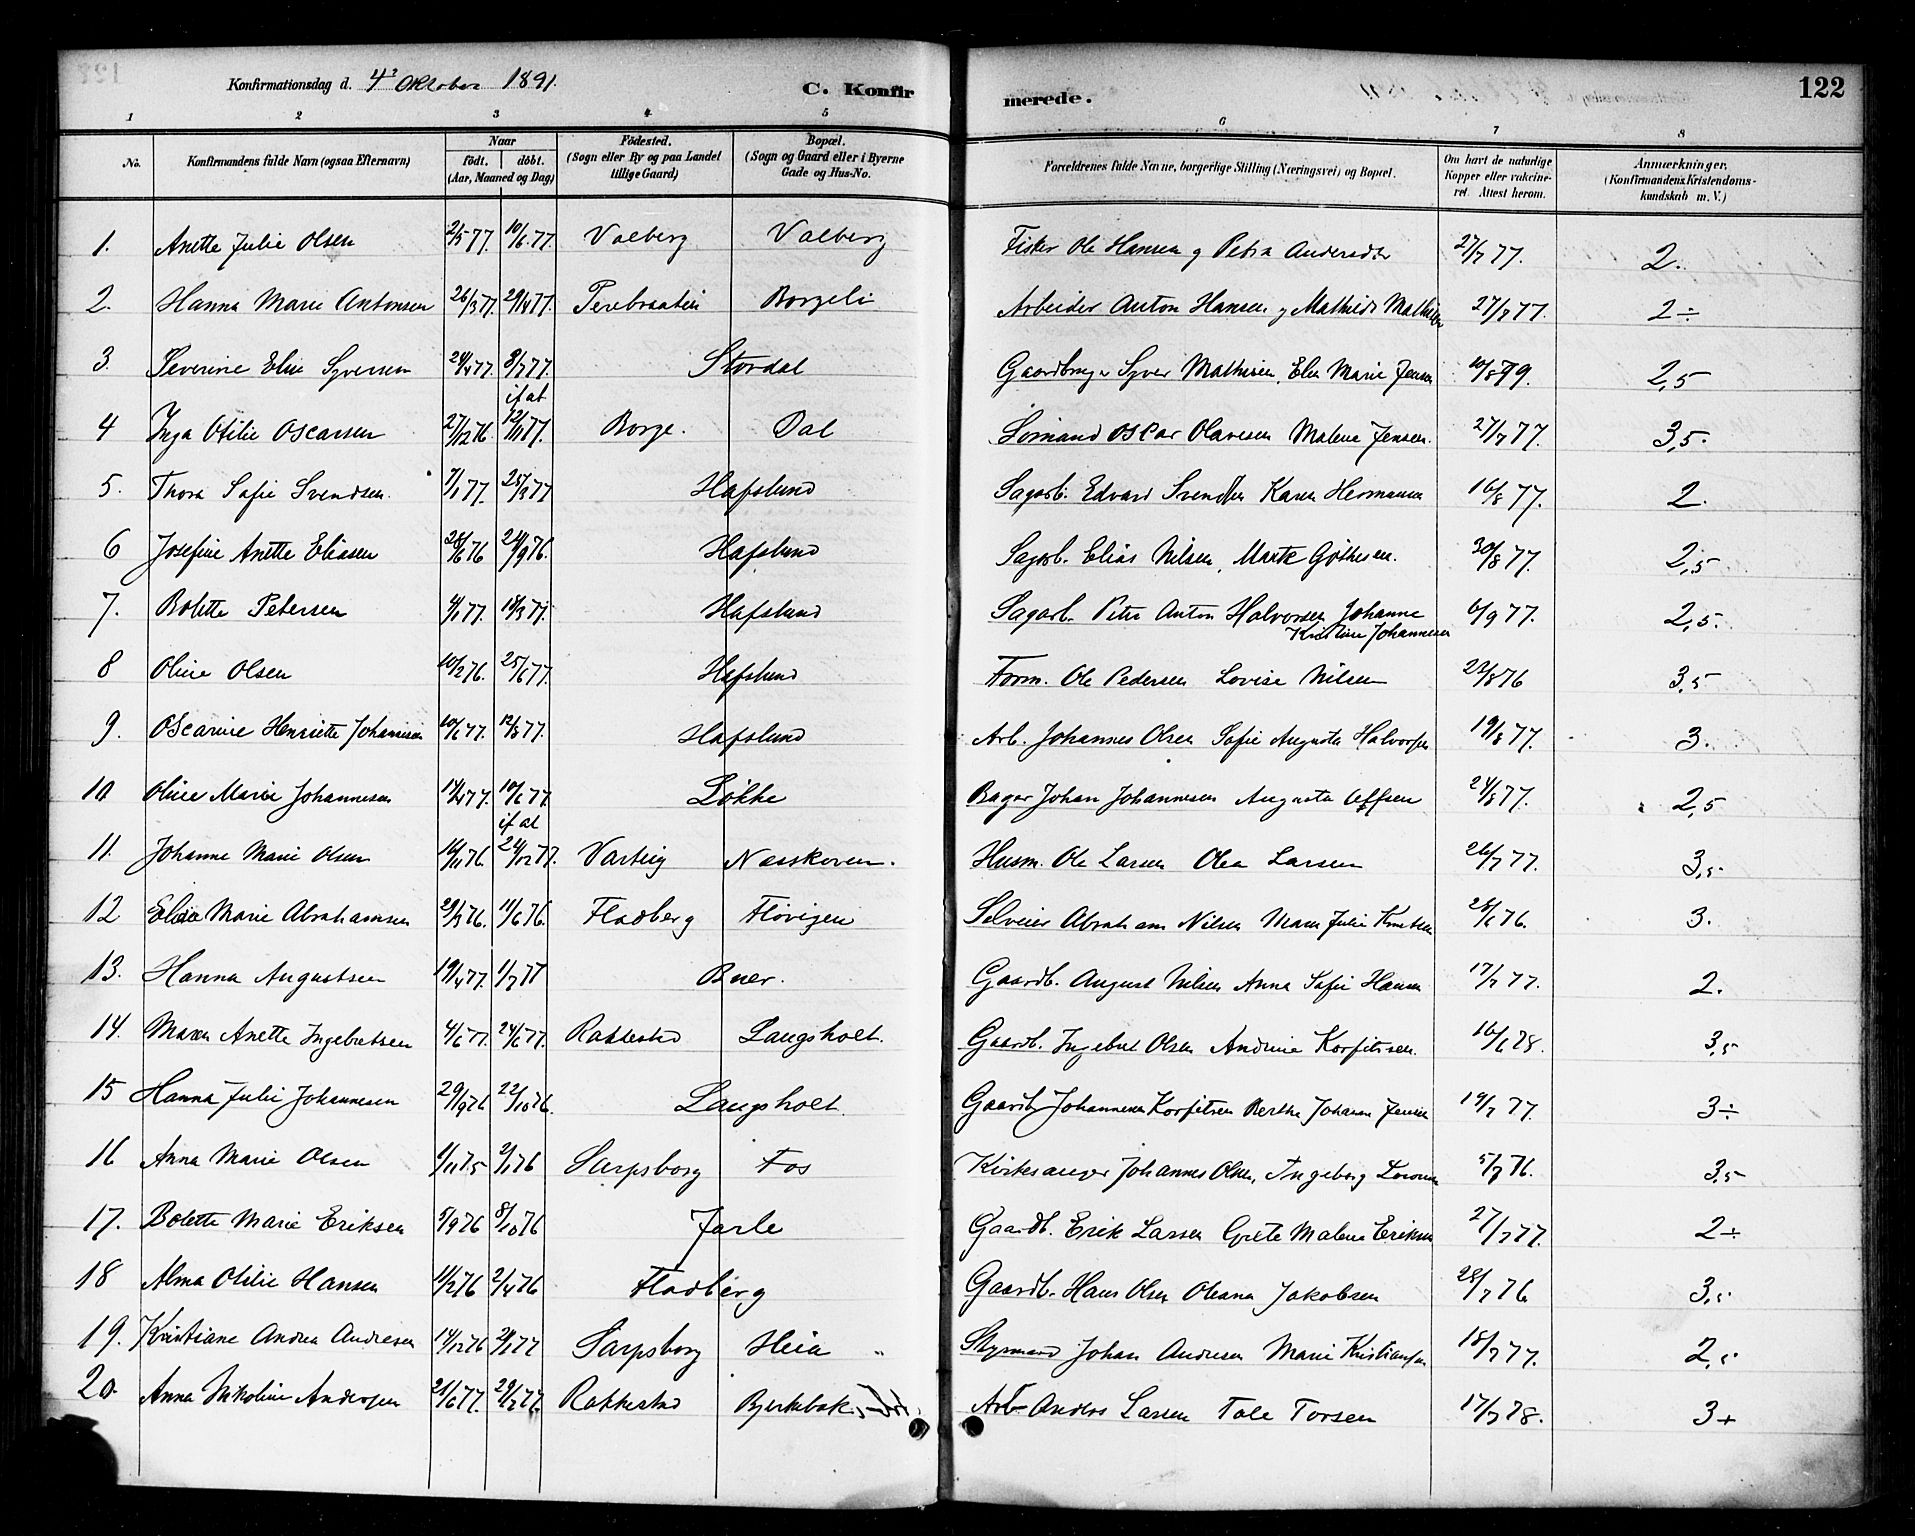 Konfirmationsdag d. 4de Oktober 1891.
C. Konfirmerede.
122
1 2 3 4 5 6 7 8
No.
Konfirmandens fulde Navn (ogsaa Efternavn)
Naar
födt. döbt.
(Aar, Maaned og Dag)
Födested.
(Sogn eller By og paa Landet
tillige Gaard)
Bopæl.
(Sogn og Gaard eller i Byerne
Gade og Hus-No.
Forældrenes fulde Navne, borgerlige Stilling (Næringsvei) og Bopæl.
Om havt de naturlige
Kopper eller vakcine-
ret. Attest herom.
Anmærkninger.
(Konfirmandens Kristendoms-
kundskab m. V.)
1. Anette Julie Olsen 2/5 77 10/6 77. Valberg Valberg Fisker Ole Hansen og Petra Andersdtr 27/7 77. 2.
2. Hanna Marie Antonsen 26/3 77. 29/4 77. Borgeli Arbeider Anton Hansen og Mathilde 27/7 77. 2÷
3. Severine Elise Syversen 24/4 77. 8/7 77. Stordal Gaardbruger Syver Mathisen, Elen Marie Jensen 10/8 79. 2,5
4 Inga Otilie Oscarsen 27/12 76. 12/11 77. Borge. Dal Sömand Oscar Olavesen Malene Jensen. 27/7 77. 3,5.
5. Thora Sofie Svendsen 7/1 77. 25/3 77 Hafslund Sagarb. Edvard Svendsen Karen Hermansen 16/8 77. 2.
6 Josefine Anette Eliasen 28/6 76 24/9 76. Hafslund Sagarb. Elias Nilsen, 30/8 77. 2,5
7. Bolette Petersen 4/1 77. 18/3 77. Hafslund Sagarb. Petter Anton Halvorsen Johanne
Kristine Johannesen 6/9 77. 2,5.
8 Oline Olsen 10/2 76. 25/6 77. Hafslund Form. Ole Pedersen Lovise Nilsen 23/8 76 3,5
9. Oscarine Henriette Johannesen 10/6 77. 12/8 77. Hafslund Arb. Johannes Olsen Sofie Augusta Halvorsen 19/8 77. 3.
10 Oline Marie Johannesen 14/4 77. 10/6 77 Løkke Bager Johan Johannesen Augusta 24/8 77. 2,5
11. Johanne Marie Olsen 16/11 76. 24/12 77. Varteig Næsskoven. Husm. Ole Larsen Olea Larsen 26/7 77. 3,5.
12 Elise Marie Abrahamsen 29/3 76. 11/6 76. Fladberg Flövigen Selveier Abraham Nilsen Maren Julie Knutsen 28/6 76. 3.
13. Hanna Augustsen 19/4 77. 1/7 77 Buer. Gaardb. August Nilsen Anna Sofie Hansen 17/7 77. 2.
14. Maren Anette Ingebretsen 4/6 77. 24/6 77. Rakkestad Langsholt. Gaardb. Ingebret Olsen Andrine Korfitsen. 16/6 78. 3,5
15 Hanna Julie Johannesen 29/9 76 22/10 76. Langsholt. Gaardb. Johannes Korfitsen Berthe Johanne Jensen 19/7 77. 3÷
16 Anna Marie Olsen 1/11 75 2/1 76 Sarpsborg Fos Kirkesanger Johannes Olsen, Ingeborg 5/7 76. 3,5
17. Bolette Marie Eriksen 5/9 76 8/10 76 Jarle Gaardb. Erik Larsen Grete Malene Eriksen 27/7 77. 2÷
18 Alma Otilie Hansen 11/2 76 2/4 76 Fladberg Gaardb. Hans Olsen Oleana Jakobsen 28/7 76 3,5
19. Kristiane Andrea Andresen 14/12 76 2/1 77 Sarpsborg Heia „ Styrmand Johan Andresen Marie Kristiansen 18/7 77. 2,5
20. Anna Nikoline Andersen 21/6 77. 29/7 77. Rakkestad Arb Anders Larsen Tale Torsen 17/7 78. 3+